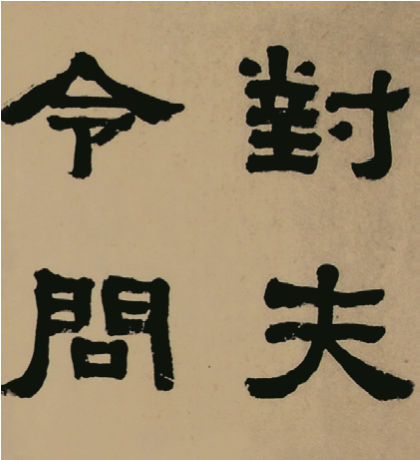 對夫
令問